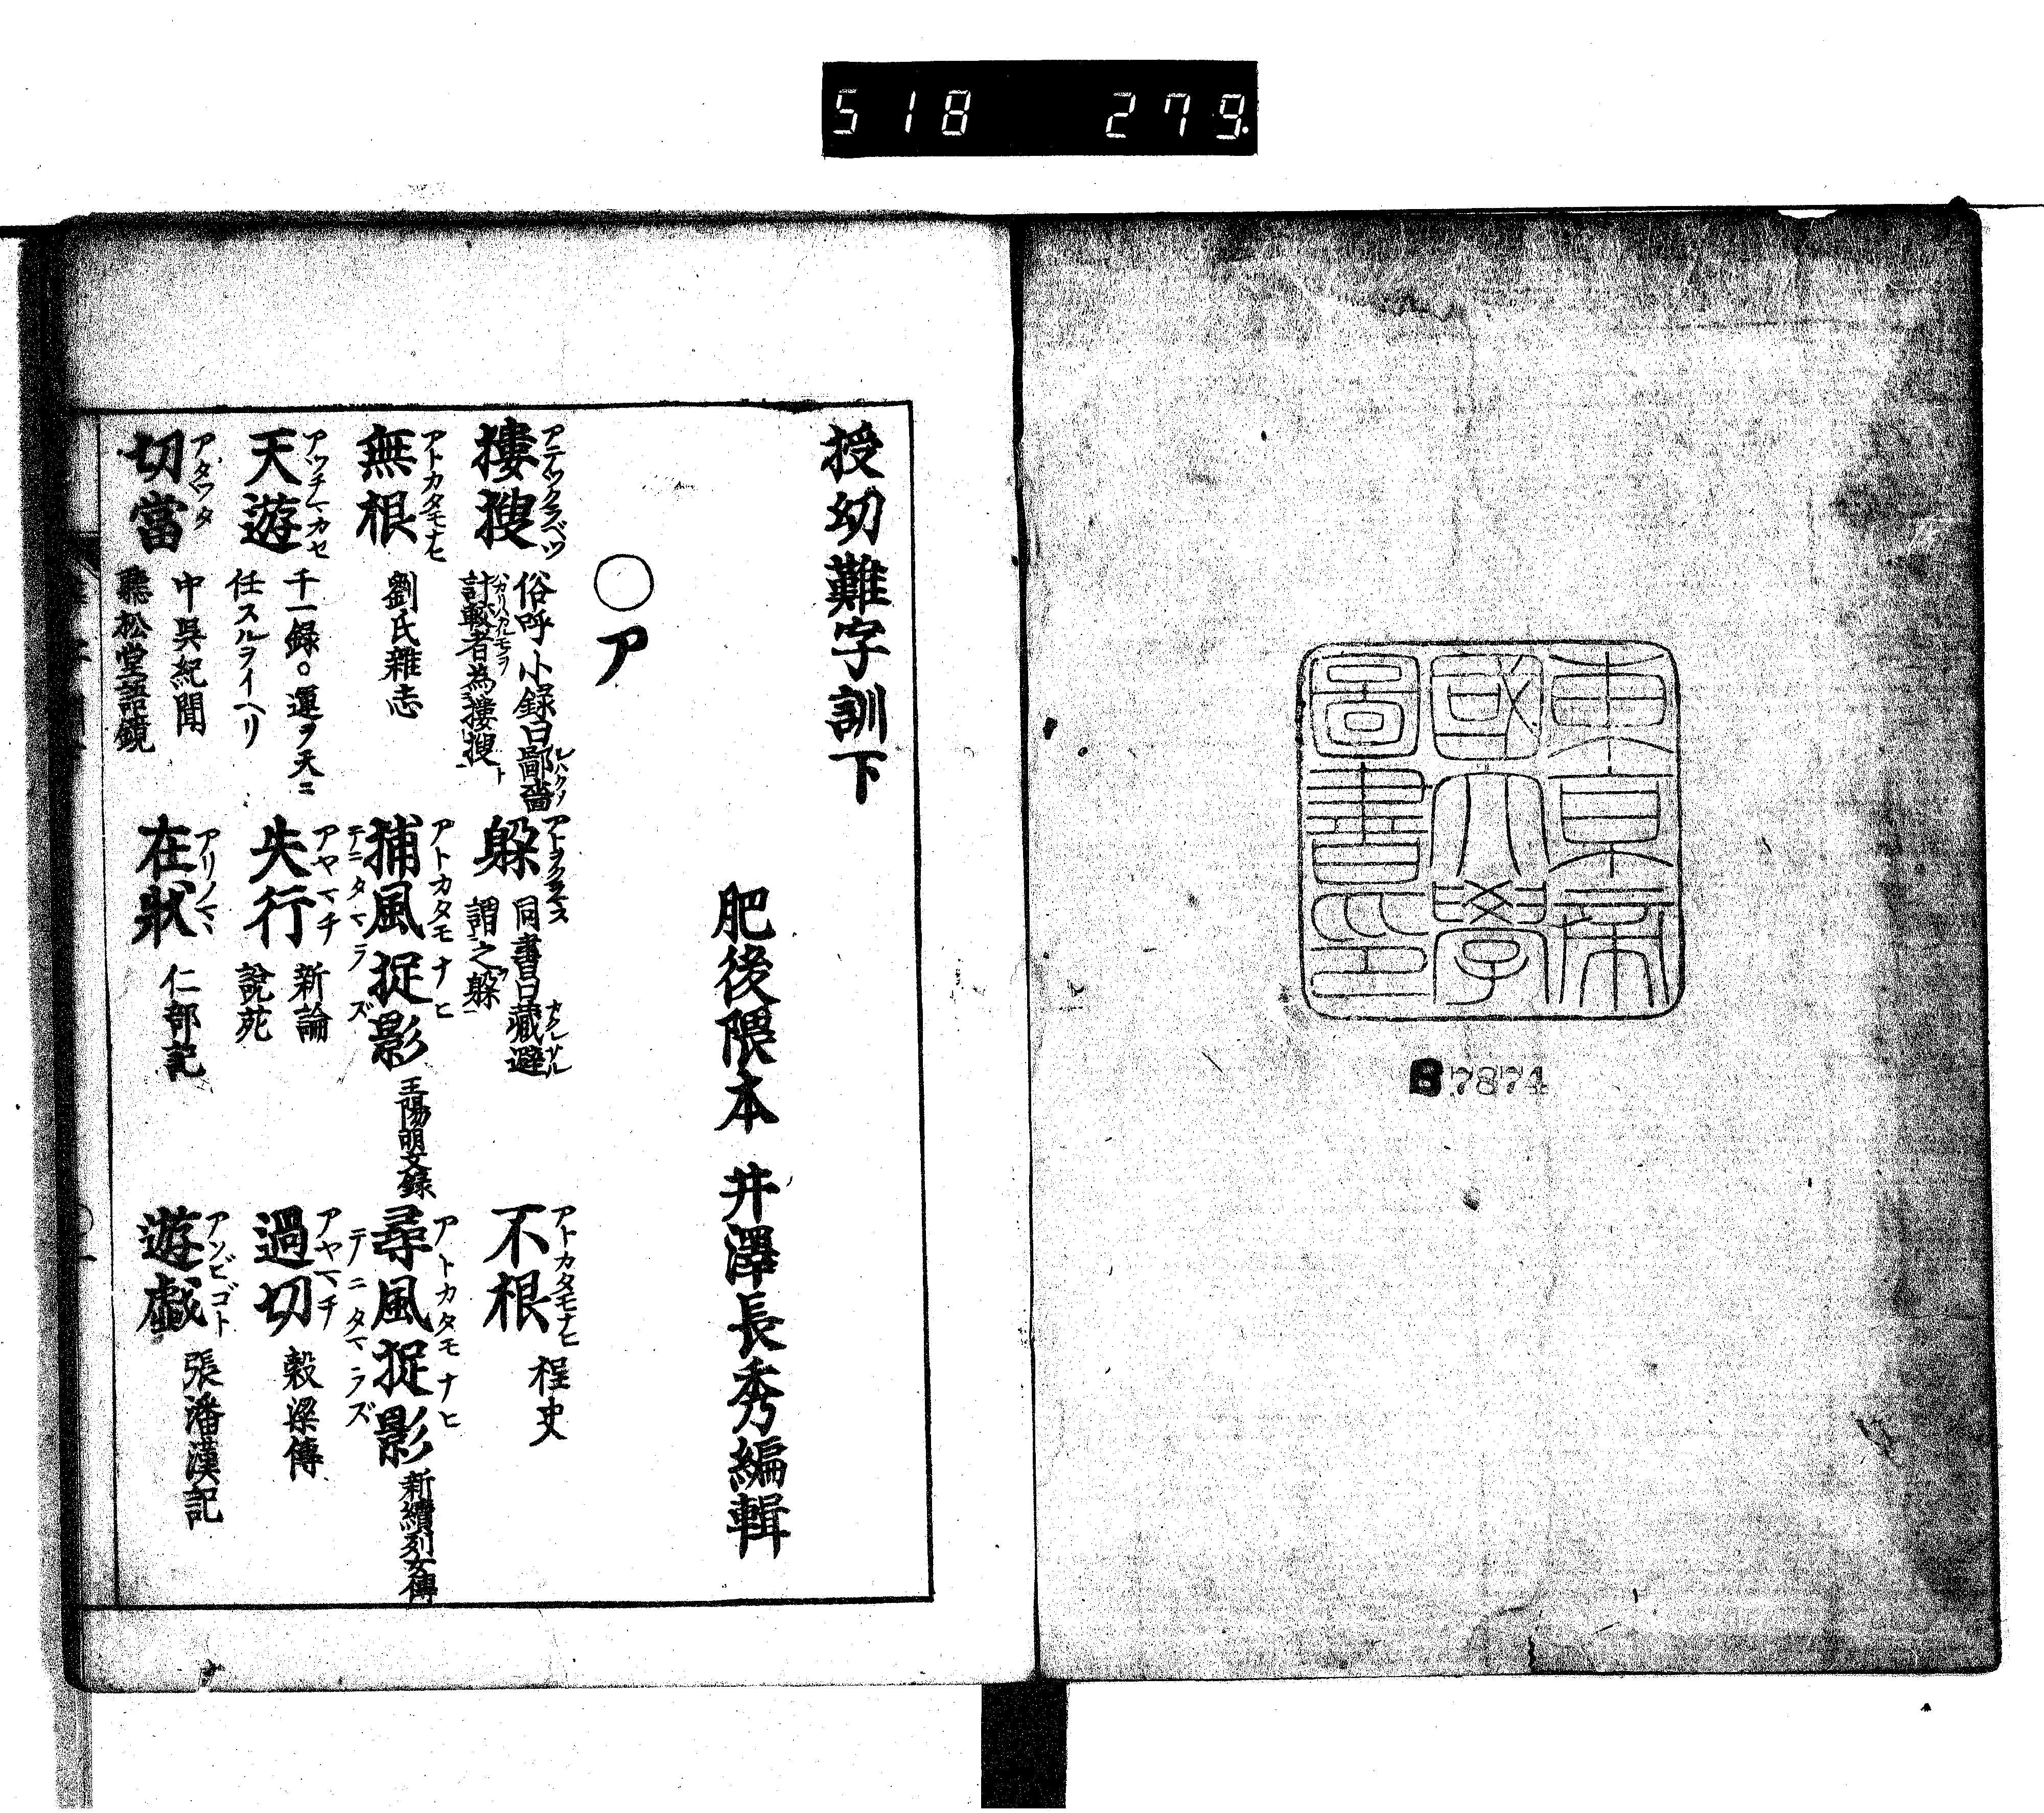 518 279.
東京帝
國大學
圖書印
B7874
授幼難字訓下
肥後隈本 井澤長秀編輯
○ア
摟搜 俗呼小録曰鄙嗇計較者為摟搜
躲 アトヲクラマス 同書曰藏避謂之躲
不根 アトカタモナヒ 桯史
無根 アトカタモナヒ 劉氏雜志
捕風捉影 アトカタモナヒ テニタマラズ 王陽明文録
尋風捉影 アトカタモナヒ テニタマラズ 新續列女傳
天遊 千一録○運ヲ天ニ任スルヲイヘリ
失行 アヤマチ 新論 說苑
過切 アヤマチ 穀梁傳
切當 中吳紀聞 聽松堂語鏡
在狀 アリノマヽ 仁部記
遊戯 アソビゴト 張潘漢記